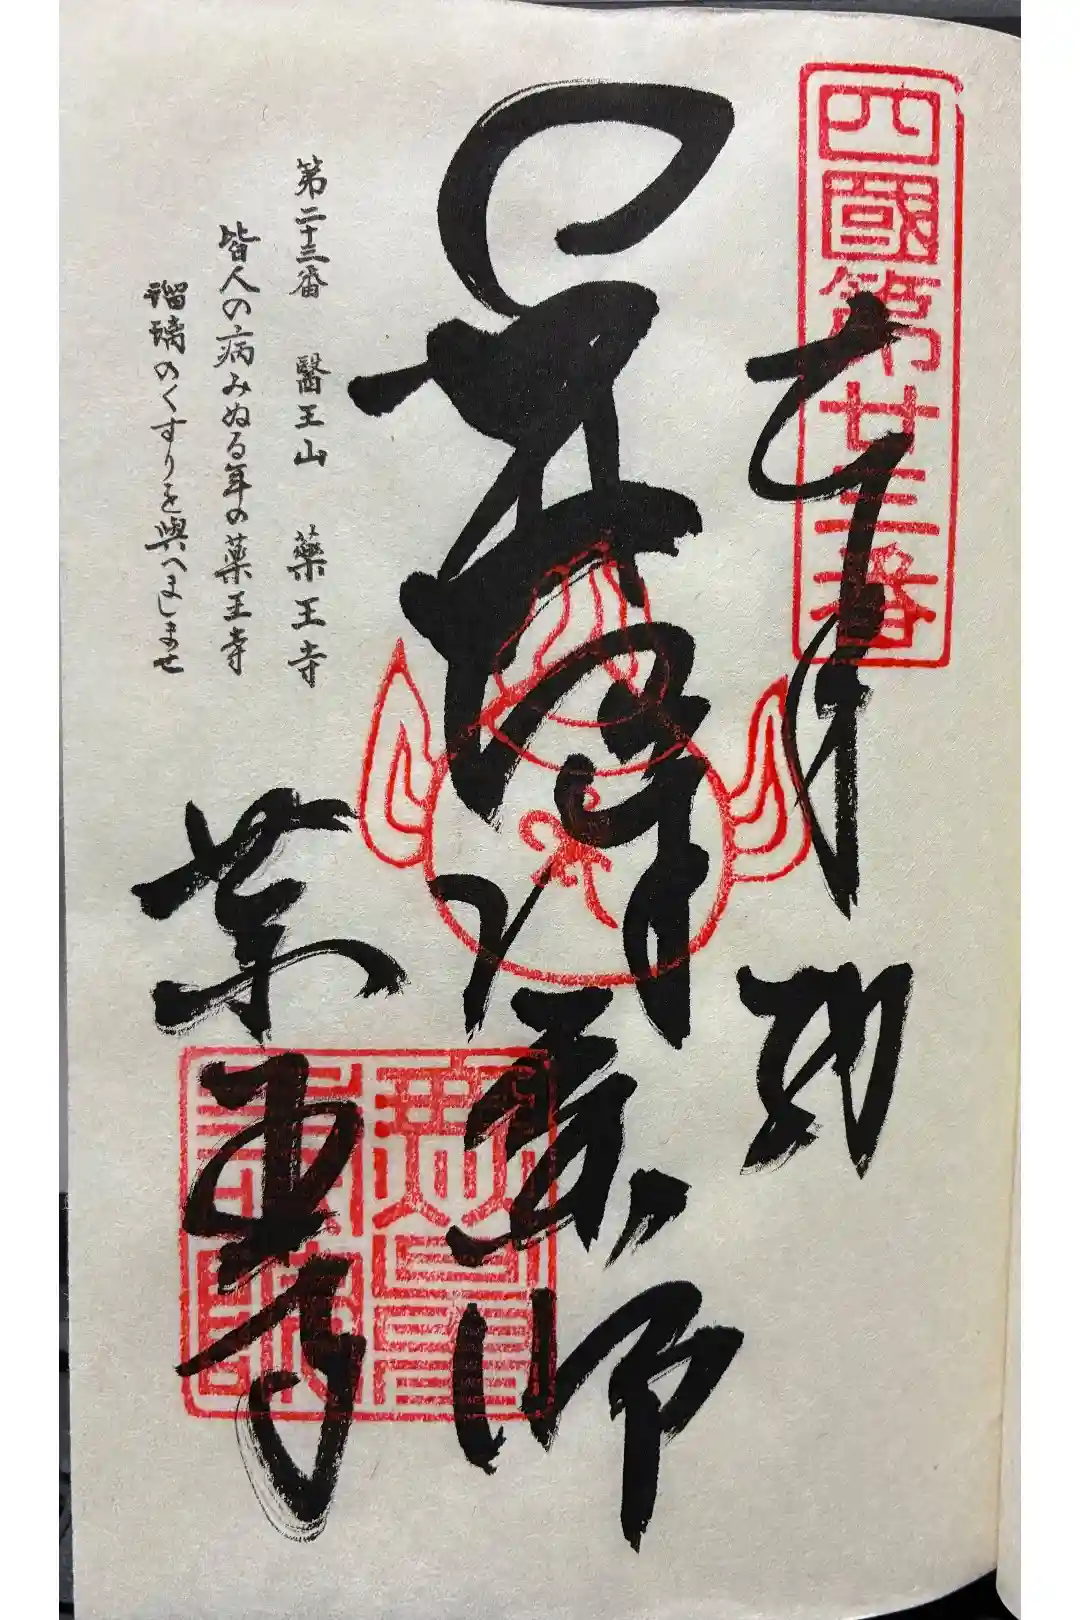 四國第廿三番
奉納
薬師
薬王寺
第二十三番 醫王山 藥王寺
皆人の病みぬる年の薬王寺
瑠璃のくすりを與へましませ